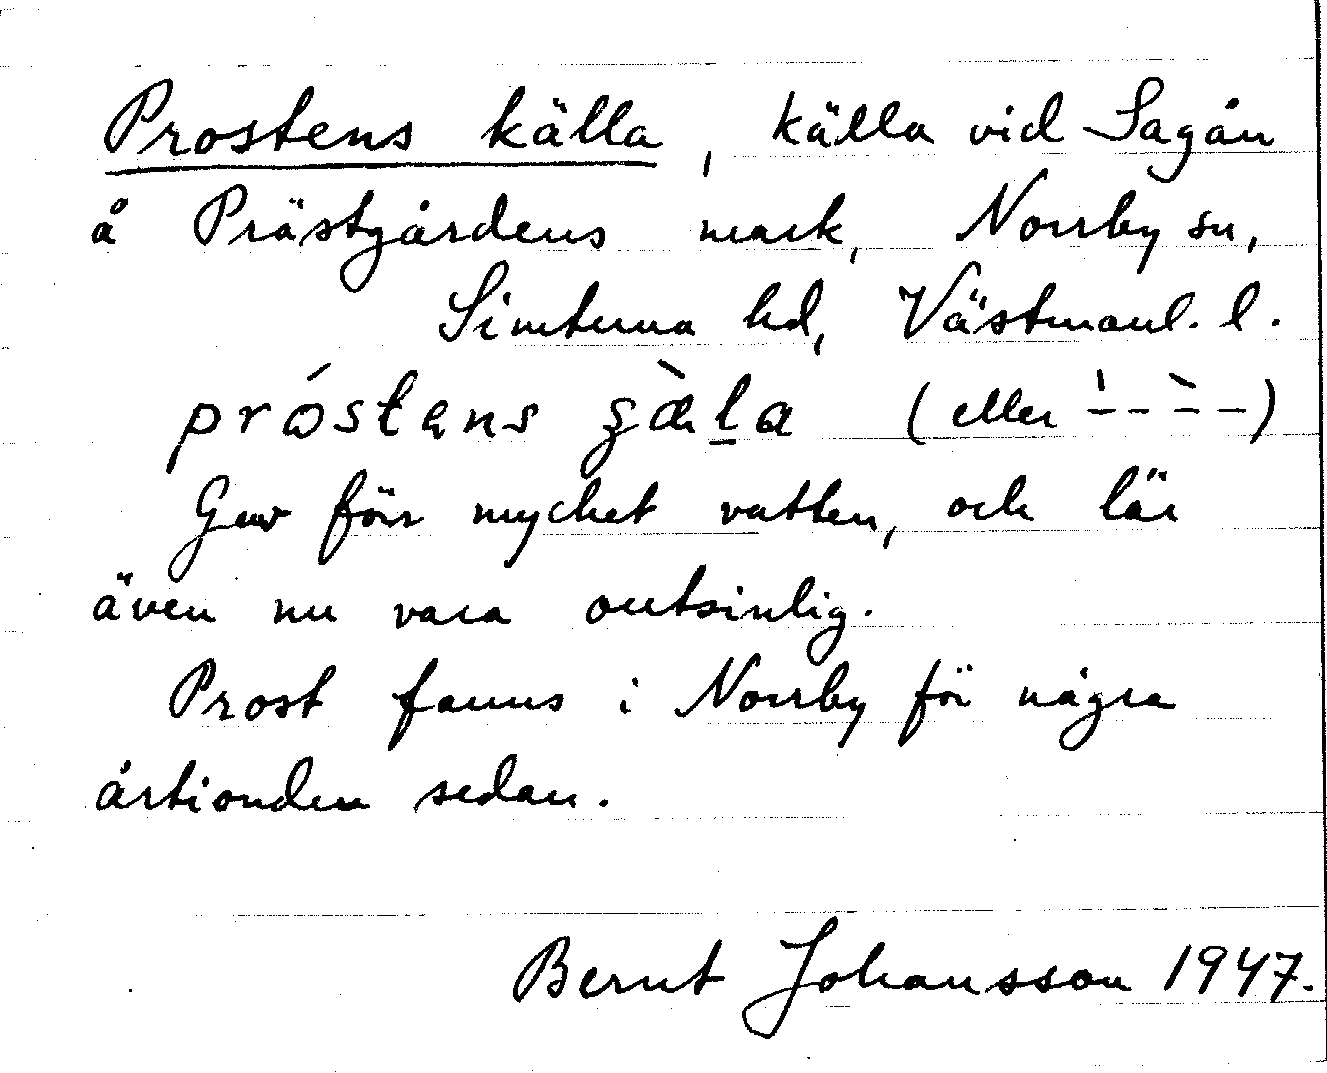 Prostens källa, källa vid Sagån
å Prästgårdens mark, Norrby sn,
Simtuna hd, Västmanl. l.
próstens (eller
Gav förr mycket vatten, och lär
även nu vara outsinlig.
Prost fanns i Norrby för några
årtionden sedan.
Bernt Johansson 1947.